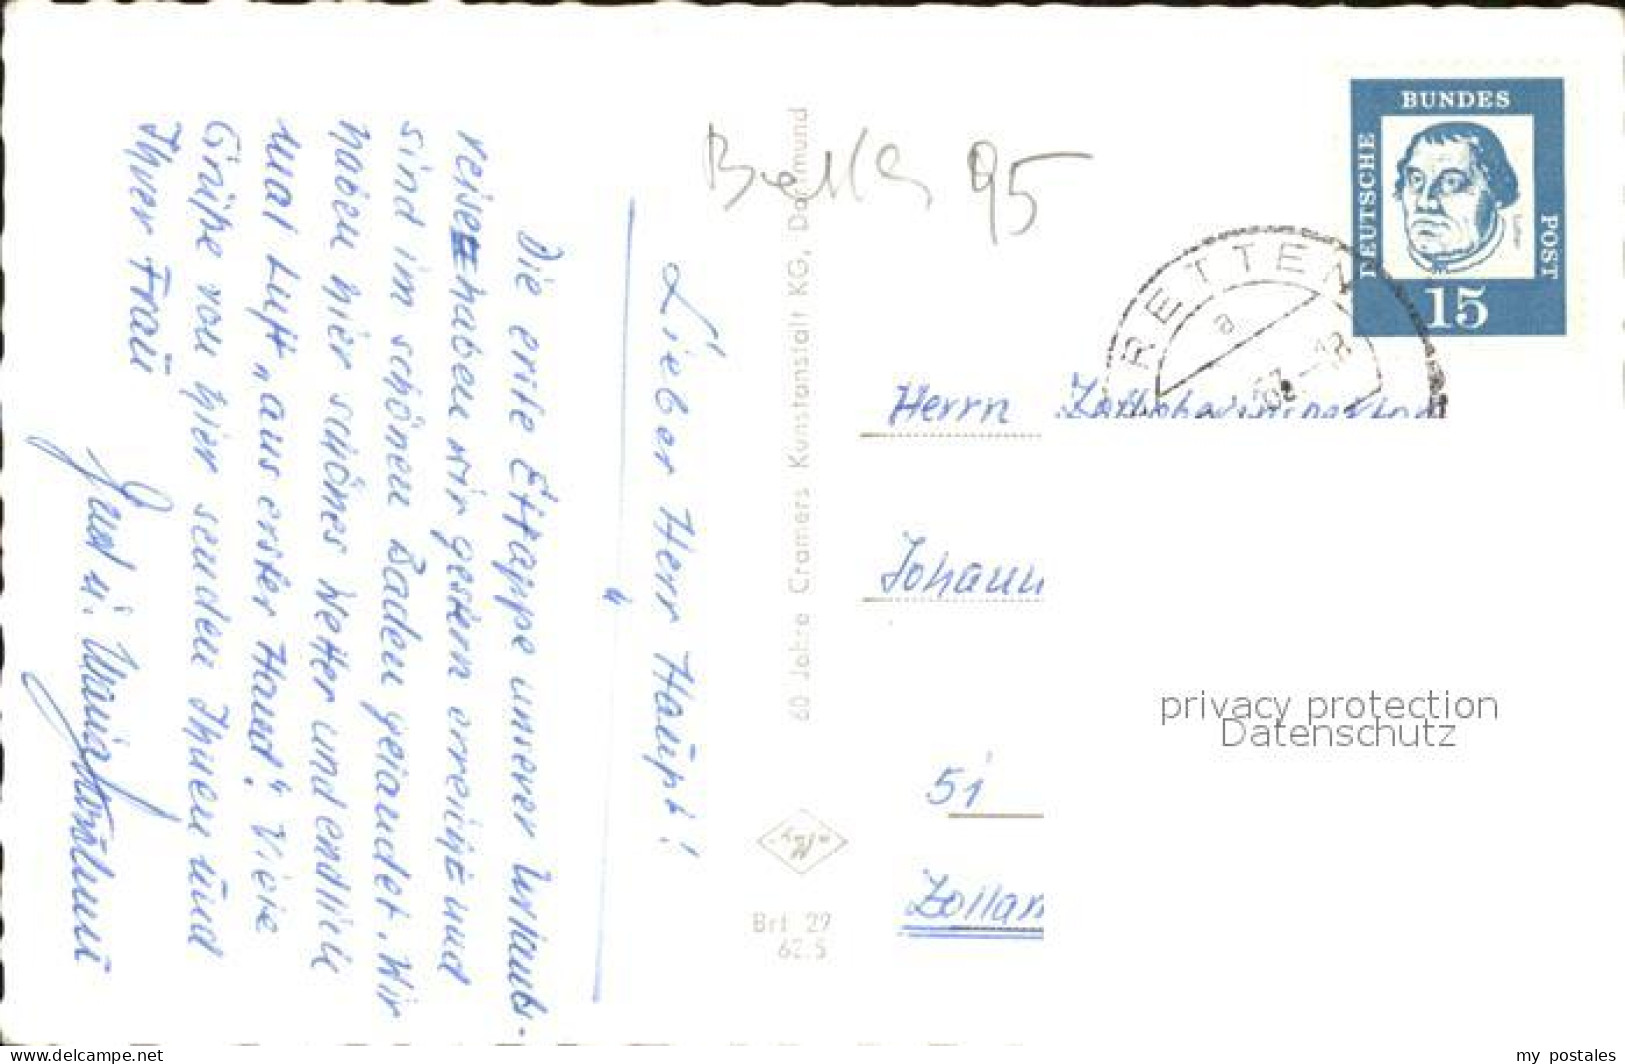 Lieber Herr Haupt!
Die erste Ettappe unserer Urlaubs-
reise haben wir gestern erreicht und
sind im schönen Baden gelandet. Wir
haben hier schönes Wetter und endlich
mal Luft „aus erster Hand“. Viele
Grüße von hier senden Ihnen und
Ihrer Frau
u. Maria
60 Jahre Cramers Kunstanstalt KG, Dortmund
Brt 29
62.5
95
BUNDES
DEUTSCHE
POST
Luther
15
BRETTEN
a
-18
Herrn
Johann
51
Zollam
privacy protection
Datenschutz
www.delcampe.net
my_postales